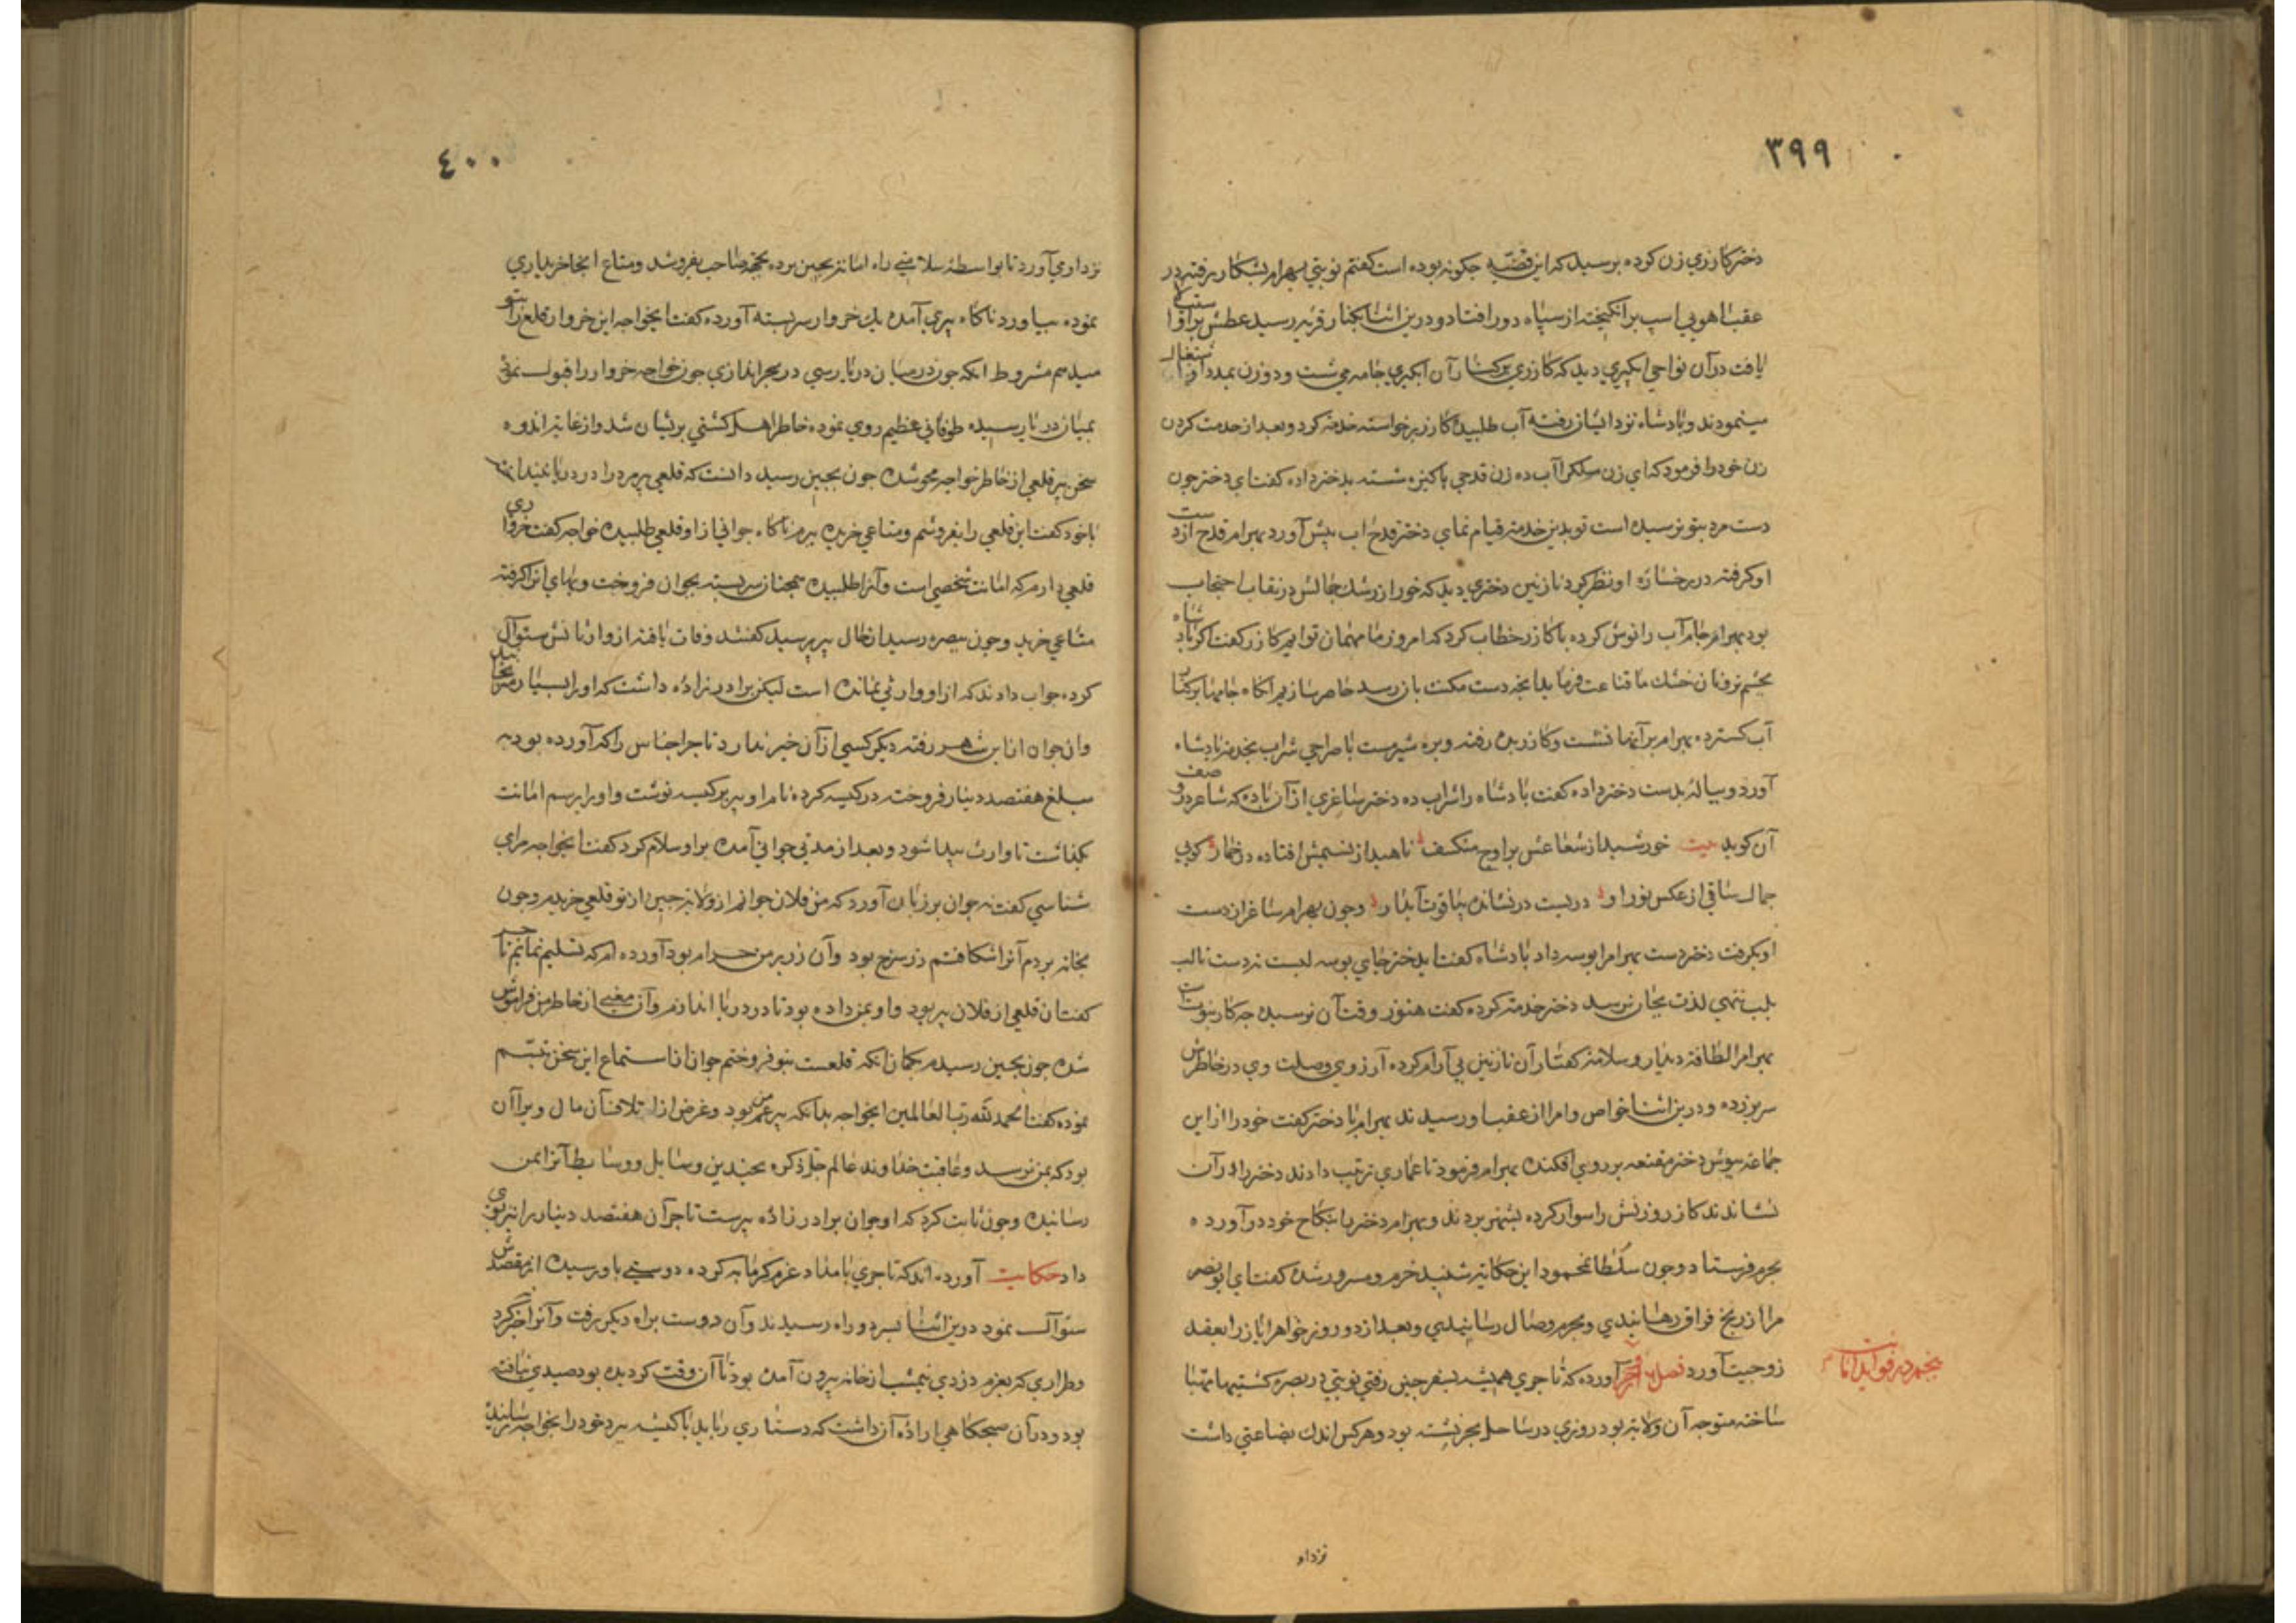 ۳۹۹
دختر کازری زن کرده پرسید که این قضیه چکونه بوده است کفتم نوبتی بهرام بشکار رفته در
عقب اهویی اسب برانکیخته از سپاه دور افتاد و درین اثنا بکنار قریه رسید عطش برو استیلا
یافت در آن نواحی ابکیری دید که کازری برکنار آن ابکیری جامه می شست و دو زن بمدد او اشتغال
مینمودند و پادشاه نزد ایشان رفته آب طلبید کازر برخواسته خدمة کرد و بعد از خدمت کردن
زن خود را فرمود که ای زن ملک را آب ده زن قدحی پاکیزه شسته بدختر داده کفت ای دختر چون
دست مرد بتو نرسیده است تو بدین خدمة قیام نمای دختر قدح اب پیش آورد بهرام قدح از دست
او کرفته در رخساره او نظر کرد نازنین دختری دید که خور از رشک جمالش در نقاب احتجاب
بود بهرام جام آب را نوش کرده با کازر خطاب کرد که امروز ما مهمان توایم کازر کفت اکر پادشاه
بخشم نرفنان خشک ما قناعت فرماید انچه دست مکنت بازرسد حاضر سازیم آنکاه جامها برکنار
آب کسترده بهرام بر آنها نشست و کازر بده رفته و بره شیرمست با صراحی شراب بخدمة پادشاه
آورد و پیاله بدست دختر داده کفت پادشاه را شراب ده دختر ساغری از آن باده که شاعر در وصف
آن کوید بیت خورشید از شعاعش بر اوج منکسف ناهید از نسیمش افتاده در خمار کویی
جمال ساقی از عکس نور او دریست در نشانده بیاقوت آبدار و چون بهرام ساغر از دست
او بکرفت دختر دست بهرام را بوسه داد پادشاه کفت ای دختر جای بوسه لبست نه دست تا لب
بلب ننهی لذت بجان نرسد دختر خدمة کرده کفت هنوز وقت آن نرسیده چه کار بنوبت
بهرام را لطافة دیدار و سلامة کفتار آن نازنین بی آرام کرده آرزوی وصلت وی در خاطرش
سر بر زده و درین اثنا خواص و امرا از عقب او رسیدند بهرام با دختر کفت خود را از این
جماعة بپوش دختر مقنعه بر روی افکنده بهرام فرمود تا عماری ترتیب دادند دختر را در آن
نشاندند کازر و زنش را سوار کرده بشهر بردند و بهرام دختر را بنکاح خود در آورده
بحرم فرستاد و چون سلطان محمود این حکایة شنید خرم و مسرور شده کفت ای ابو نصر
مرا از رنج فراق رهانیدی و بحرم وصال رسانیدی و بعد از دو روز خواهر ایاز را بعقد
زوجیت آورد فصل پنجم آورده که تاجری همیشه بسفر چین رفتی نوبتی در بصره کشتیها مهیا
ساخته متوجه آن ولایة بود روزی در ساحل بحر نشسته بود و هرکس اندک بضاعتی داشت
پنجم در فواید امانت
نزد او
۴۰۰
نزد او می آورد تا بواسطه سلامتی راه امانة بچین برده بجهة صاحب بفروشد و متاع انجا خریداری
نموده بیاورد ناکاه پیری آمده یک خروار سربسته آورده کفت ایخواجه این خروار قلع را بتو
میدهم مشروط انکه چون در میان دریا رسی در بحر اندازی چون خواجه خروار را قبول نموده
بمیان دریا رسیده طوفانی عظیم روی نموده خاطر اهل کشتی پریشان شد و از غایة اندوه
سخن پیر قلعی از خاطر خواجه محو شده چون بچین رسید دانست که قلعی پیرمرد را در دریا نینداخته
با خود کفت این قلعی را بفروشم و متاعی خریده ببرم ناکاه جوانی از او قلعی طلبید خواجه کفت خرواری
قلعی دارم که امانت شخصی است و آنرا طلبیده همچنان سربسته بجوان فروخت و بهای انرا کرفته
متاعی خرید و چون ببصره رسید از حال پیر پرسید کفتند وفات یافته از وارثانش سئوال
کرده جواب دادند که از او وارثی نمانده است لیکن برادر زاده داشت که او را بسیار
وان جوان از این شهر رفته دیکر کسی از آن خبر ندارد تاجر اجناس را که آورده بود به
مبلغ هفتصد دینار فروخته در کیسه کرده نام او بر کیسه نوشت و او را برسم امانت
بکذاشت تا وارث پیدا شود و بعد از مدتی جوانی آمده بر او سلام کرد کفت ایخواجه مرا می
شناسی کفت نه جوان بر زبان آورد که من فلان جوانم از ولایة چین از تو قلعی خریدم و چون
بخانه بردم آنرا شکافتم زر سرخ بود و آن زر بر من حرام بود آورده ام که تسلیم نمایم تاجر
کفت ان قلعی از فلان پیر بود و او بمن داده بود تا در دریا اندازم و آن معنی از خاطر من فراموش
شده چون بچین رسیدم بکمان انکه قلعست بتو فروختم جوان از استماع این سخن تبسم
نموده کفت الحمد لله رب العالمین ایخواجه بدانکه پیر عم من بود و غرض از اتلاف آن مال ویرا آن
بود که بمن نرسد و عاقبت خداوند عالم جل ذکره بچندین وسایل و وسایط آنرا بمن
رسانیده و چون ثابت کرد که او جوان برادر زاده پیرست تاجر آن هفتصد دینار را نیز بوی
داد حکایت آورده اند که تاجری بامداد عزم کرمابه کرده دوستی باو رسیده از مقصدش
سئوال نمود درین اثنا بسر دو راه رسیدند و آن دوست براه دیکر رفت و آنرا خبر نکرد
و طراری که بعزم دزدی نیمشب از خانه بیرون آمده بود تا آن وقت کردیده بود صیدی نیافته
بود و در آن صبحکاهی اراده آن داشت که دستاری رباید یا کیسه برد خود را بخواجه رسانیده